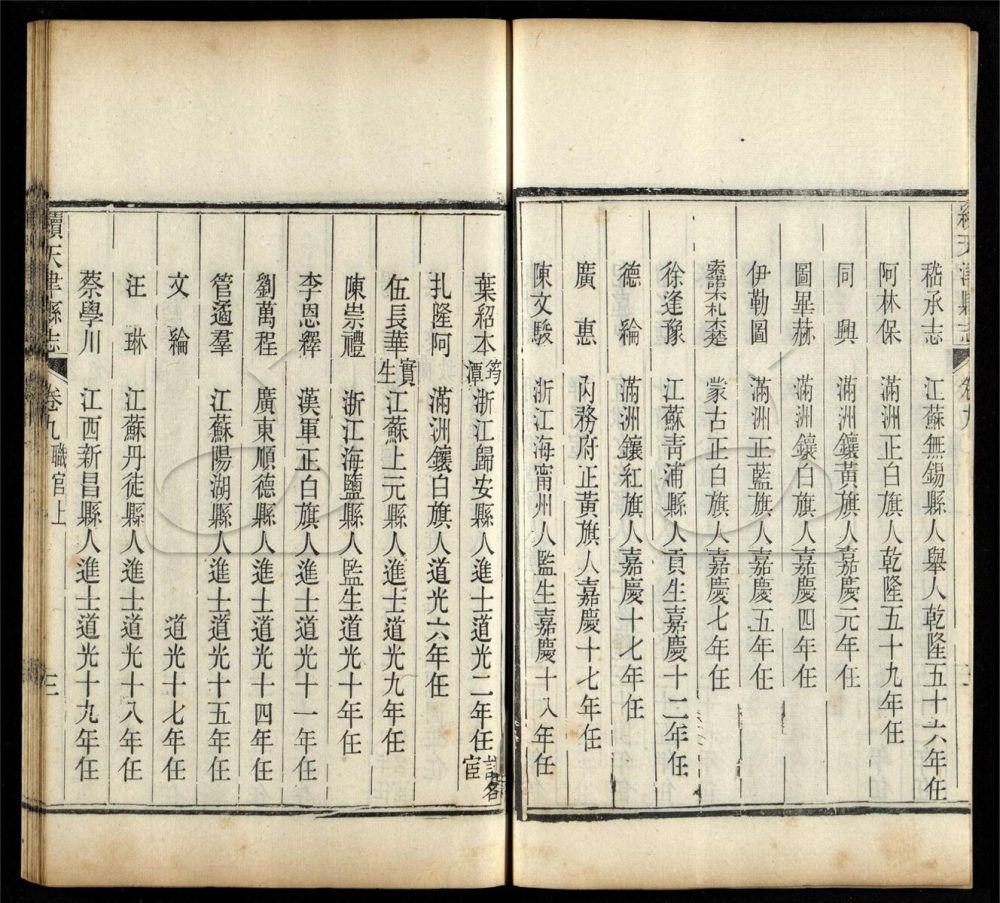 續天津縣志 卷九
嵇承志 江蘇無錫縣人舉人乾隆五十六年任
阿林保 滿洲正白旗人乾隆五十九年任
同興 滿洲鑲黃旗人嘉慶元年任
圖畢赫 滿洲鑲白旗人嘉慶四年任
伊勒圖 滿洲正藍旗人嘉慶五年任
索諾木札木楚 蒙古正白旗人嘉慶七年任
徐逢豫 江蘇青浦縣人貢生嘉慶十二年任
德綸 滿洲鑲紅旗人嘉慶十七年任
廣惠 內務府正黃旗人嘉慶十七年任
陳文駿 浙江海甯州人監生嘉慶十八年任
葉紹本 筠潭 浙江歸安縣人進士道光二年任 名宦
扎隆阿 滿洲鑲白旗人道光六年任
伍長華 實生 江蘇上元縣人進士道光九年任
陳崇禮 浙江海鹽縣人監生道光十年任
李恩繹 漢軍正白旗人進士道光十一年任
劉萬程 廣東順德縣人進士道光十四年任
管遹羣 江蘇陽湖縣人進士道光十五年任
文綸 道光十七年任
汪琳 江蘇丹徒縣人進士道光十八年任
蔡學川 江西新昌縣人進士道光十九年任
續天津縣志 卷九職官上 三